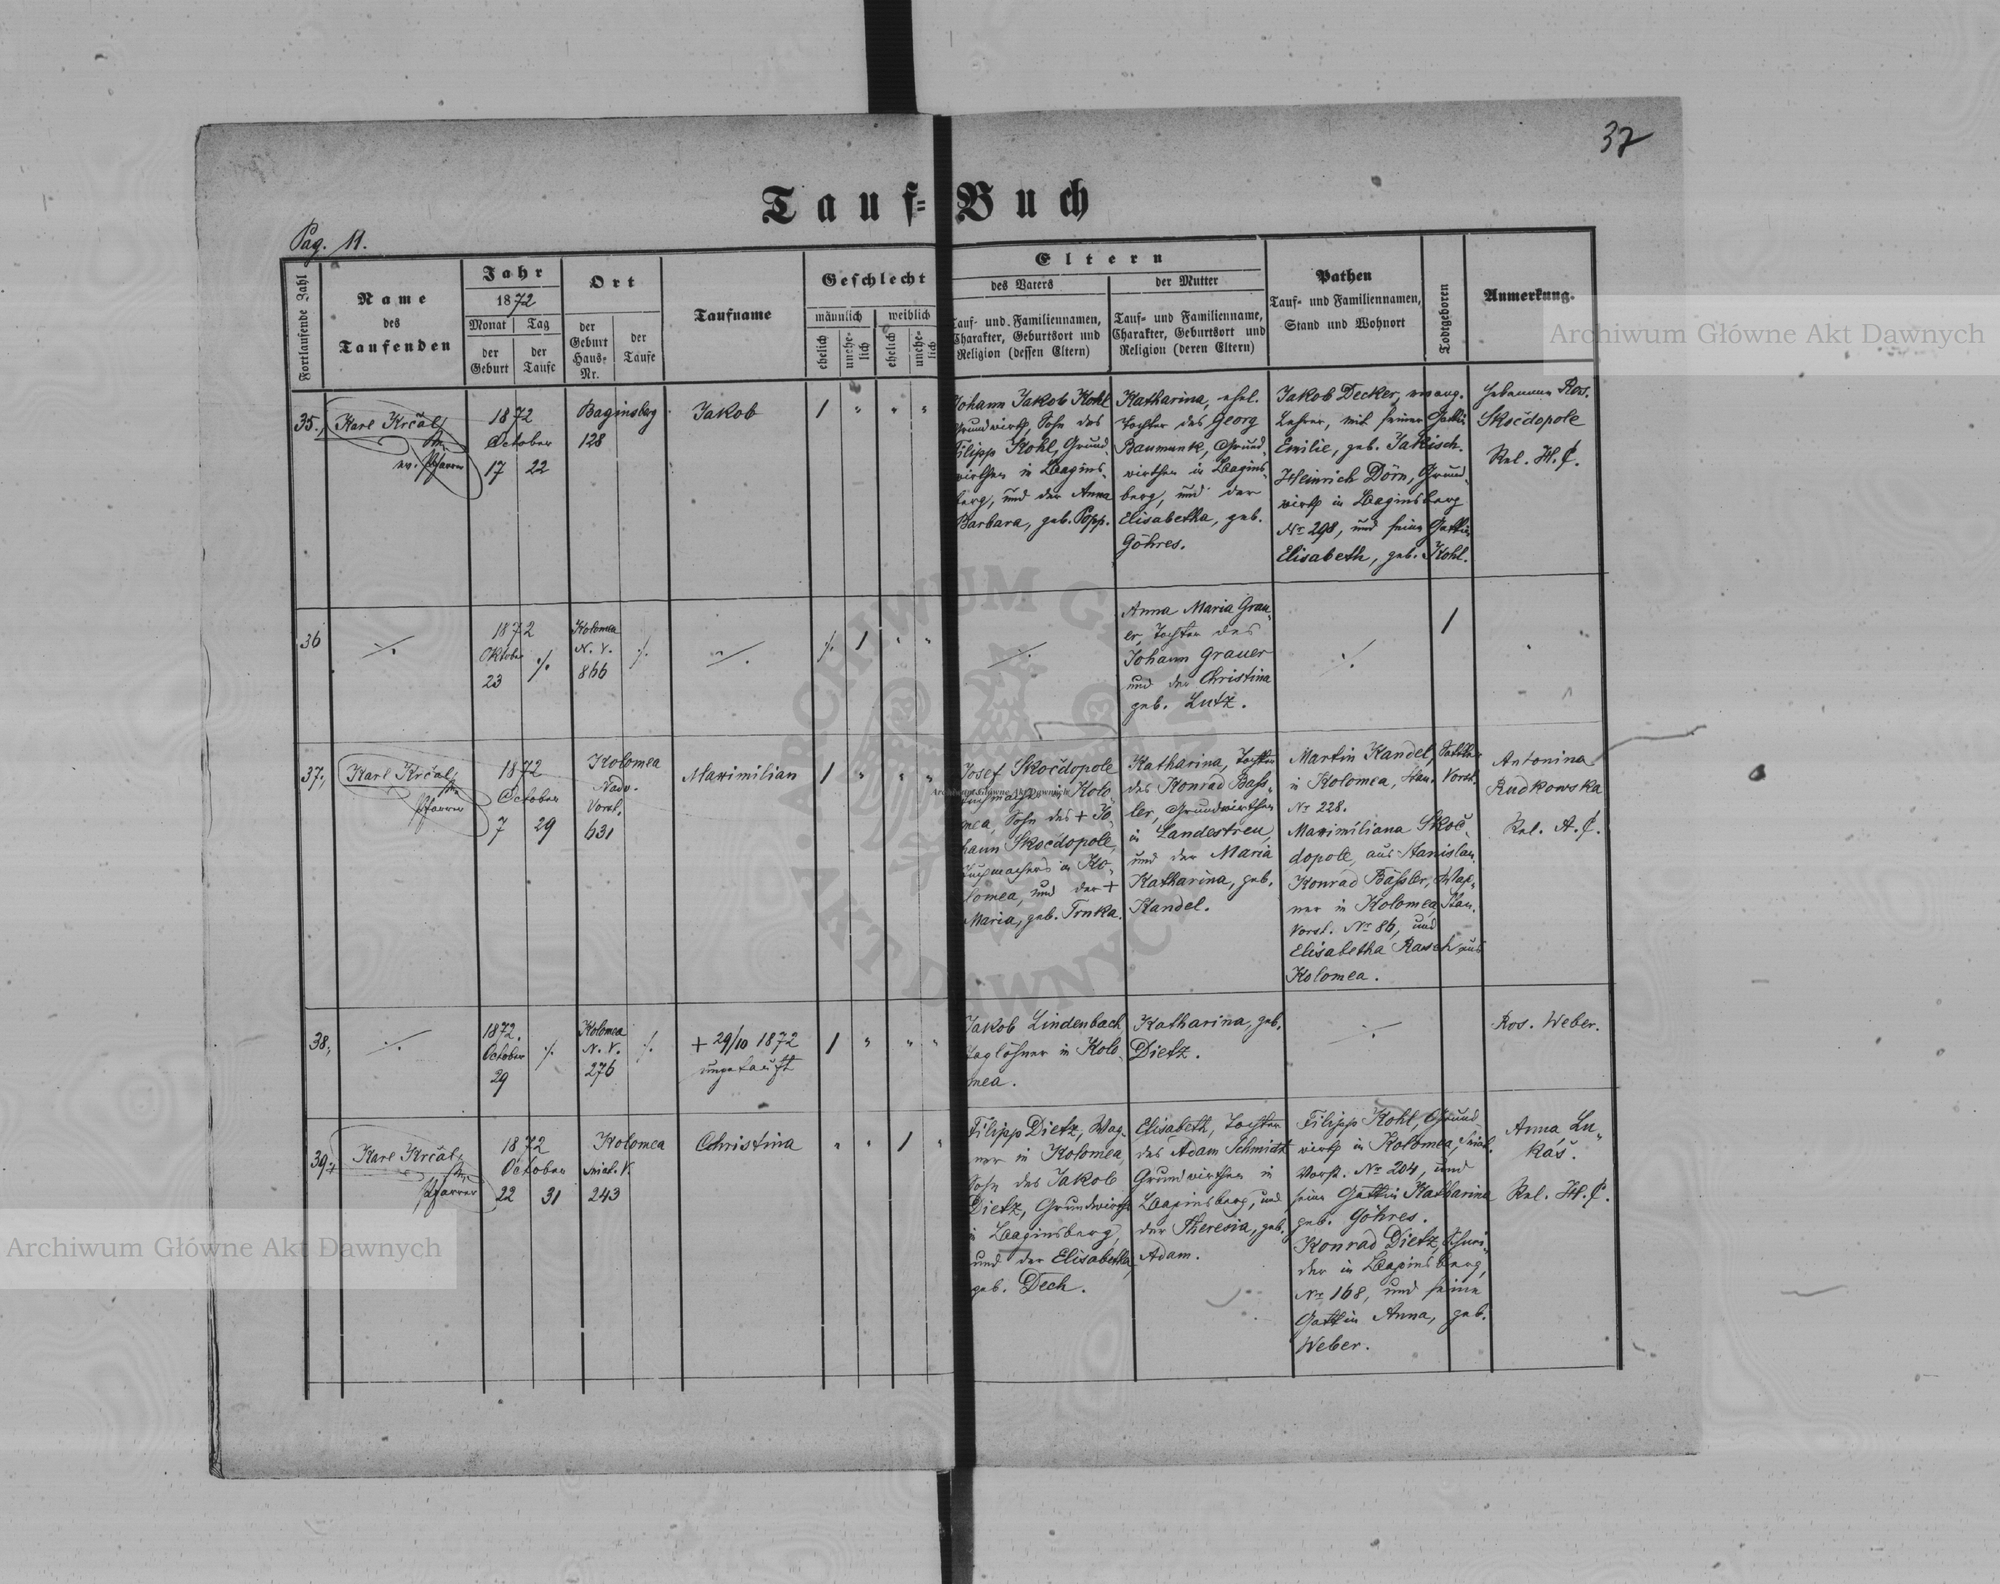 37
Tauf-Buch
Pag. 11.
Fortlaufende Zahl
Name
des
Taufenden
Jahr
1872
Monat
Tag
der
Geburt
der
Taufe
Ort
der
Geburt
Haus-
Nr.
der
Taufe
Taufname
Geschlecht
männlich
weiblich
ehelich
unehe-
lich
ehelich
unehe-
lich
Eltern
des Vaters
Tauf- und Familiennamen,
Charakter, Geburtsort und
Religion (dessen Eltern)
der Mutter
Tauf- und Familienname,
Charakter, Geburtsort und
Religion (deren Eltern)
Pathen
Tauf- und Familiennamen,
Stand und Wohnort
Todtgeboren
Anmerkung.
35.
Karl Krčal
ev. Pfarrer
1872
October
17 22
Baginsberg
128
Jakob
/ " " "
Johann Jakob Kohl
Grundwirth, Sohn des
Filipp Kohl, Grund-
wirthen in Bagins-
berg, und der Anna
Barbara, geb. Popp.
Katharina, ehel.
Tochter des Georg
Baumunk, Grund-
wirthen in Bagins-
berg, und der
Elisabetha, geb.
Göhres.
Jakob Decker, evang.
Lehrer, mit seiner Gattin
Emilie, geb. Jakisch.
Heinrich Dörn, Grund-
wirth in Baginsberg
Nr 298, und seine Gattin
Elisabeth, geb. Kohl.
Hebamme Ros.
Skočdopole
Rel. H. C.
36
./.
1872
Oktober
23
./.
Kolomea
N. V.
866
./.
./.
./. / " "
./.
Anna Maria Grau-
er, Tochter des
Johann Grauer
und der Christina
geb. Lutz.
./.
/
37.
Karl Krčal
Pfarrer
1872
October
7 29
Kolomea
Nadv.
Vorst.
631
Maximilian
/ " " "
Josef Skočdopole
Tuchmacher in Kolo-
mea, Sohn des + Jo-
hann Skočdopole,
Tuchmachers in Ko-
lomea, und der +
Maria, geb. Trnka.
Katharina, Tochter
des Konrad Bäss-
ler, Grundwirthen
in Landestreu,
und der Maria
Katharina, geb.
Kandel.
Martin Kandel, Sattler
in Kolomea, Stan. Vorst.
Nr 228.
Maximiliana Skoč-
dopole, aus Stanislau.
Konrad Bässler, Wag-
ner in Kolomea, Stan.
Vorst. Nr 86, und
Elisabetha Rasch aus
Kolomea.
Antonina
Rudkowska
Rel. A. C.
38.
./.
1872.
October
29
./.
Kolomea
N. V.
276
./.
+ 29/10 1872
ungetauft
/ " " "
Jakob Lindenbach,
Taglöhner in Kolo-
mea.
Katharina, geb.
Dietz.
./.
Ros. Weber.
39.
Karl Krčal
Pfarrer
1872
October
22 31
Kolomea
Sniat. V.
243
Christina
" " / "
Filipp Dietz, Wag-
ner in Kolomea,
Sohn des Jakob
Dietz, Grundwirths
in Baginsberg,
und der Elisabetha,
geb. Dech.
Elisabeth, Tochter
des Adam Schmidt
Grundwirthen in
Baginsberg, und
der Theresia, geb.
Adam.
Filipp Kohl, Grund-
wirth in Kolomea, Sniat.
Vorst. Nr 204, und
seine Gattin Katharina
geb. Göhres.
Konrad Dietz, Schnei-
der in Baginsberg,
Nr 168, und seine
Gattin Anna, geb.
Weber.
Anna Lu-
káš.
Rel. H. C.
Archiwum Główne Akt Dawnych
Archiwum Główne Akt Dawnych
Archiwum Główne Akt Dawnych
ARCHIWUM GŁÓWNE AKT DAWNYCH